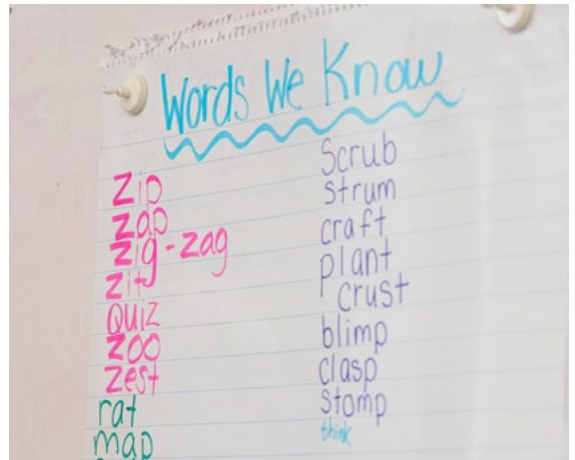 Words We Know
Zip
Zap
Zig-zag
Zit
Quiz
Zoo
Zest
rat
map
Scrub
strum
craft
plant
crust
blimp
clasp
stomp
think